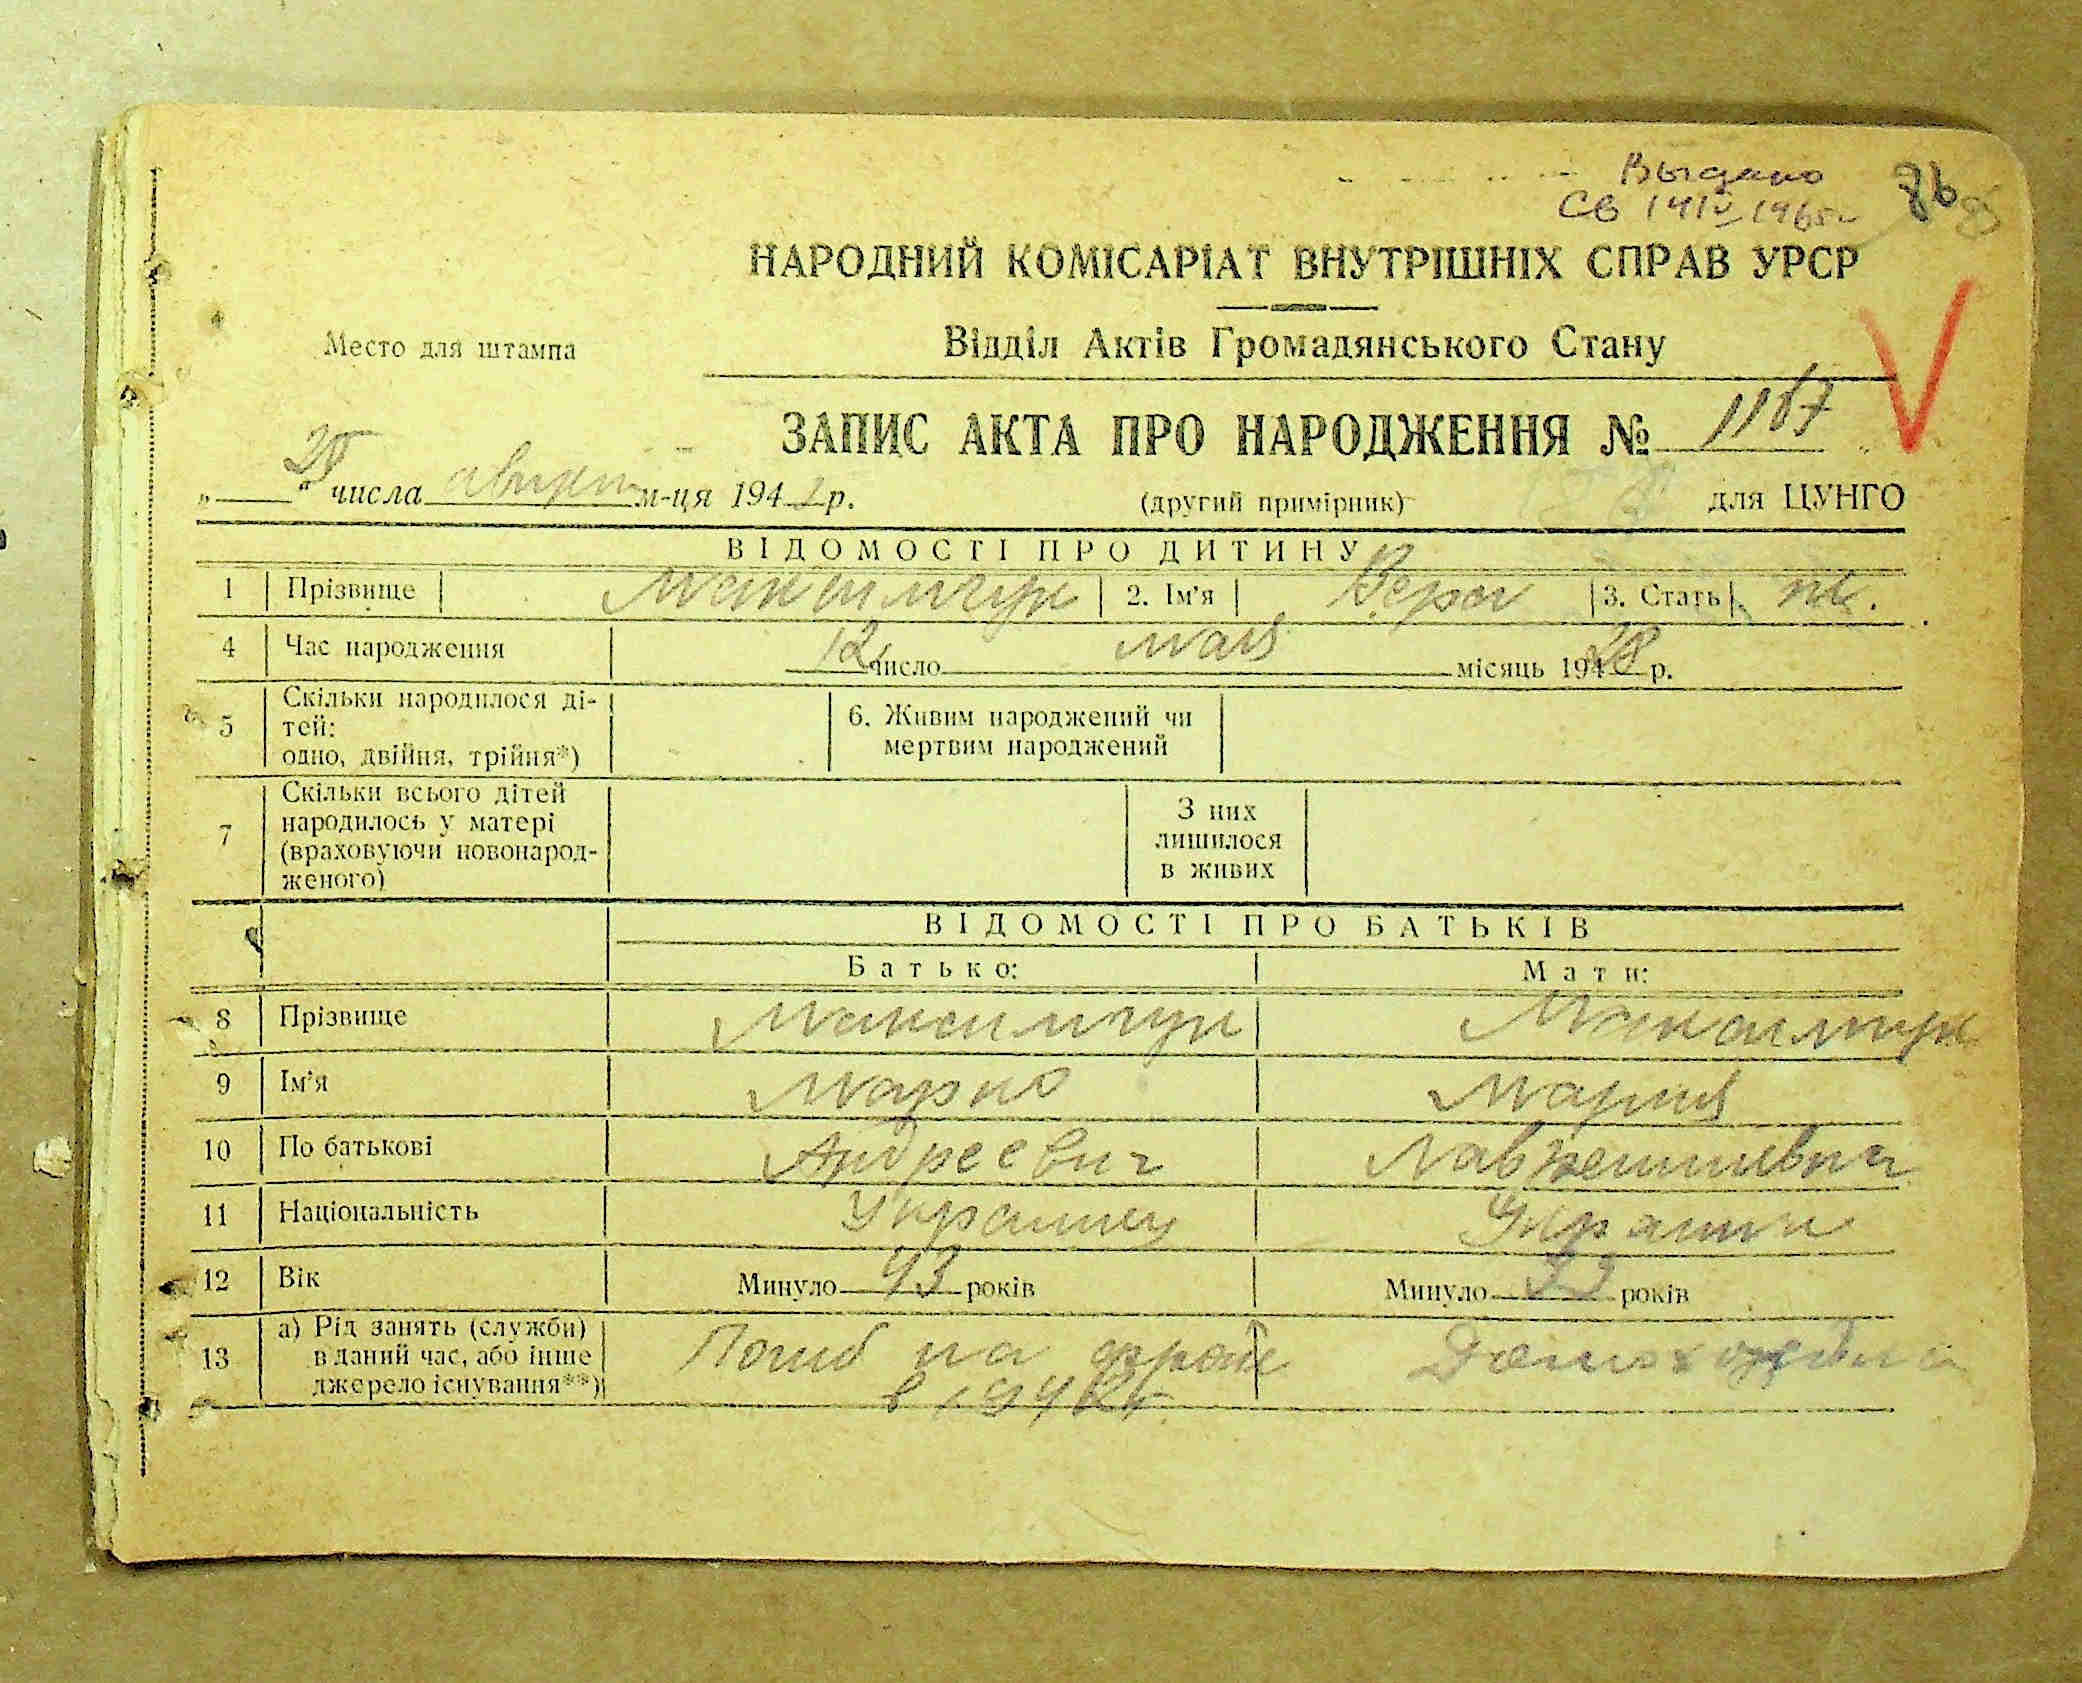 Выдано 86
СВ
НАРОДНИЙ КОМІСАРІАТ ВНУТРІШНІХ СПРАВ УРСР
Место для штампа
Відділ Актів Громадянського Стану
ЗАПИС АКТА ПРО НАРОДЖЕННЯ № 1167
„ “ числа август м-ця 194 р.
(другий примірник) для ЦУНГО
ВІДОМОСТІ ПРО ДИТИНУ
1 Прізвище Максимчук 2. Ім'я Вера 3. Стать ж.
4 Час народження 12 число мая місяць 1928 р.
5 Скільки народилося ді-
тей:
одно, двійня, трійня*)
6. Живим народжений чи
мертвим народжений
7 Скільки всього дітей
народилось у матері
(враховуючи новонарод-
женого)
З них
лишилося
в живих
ВІДОМОСТІ ПРО БАТЬКІВ
Батько: Мати:
8 Прізвище Максимчук Максимчук
9 Ім'я Марко Мария
10 По батькові Андреевич
11 Національність Украинец Украин
12 Вік Минуло 43 років Минуло 33 років
13 а) Рід занять (служби)
в даний час, або інше
джерело існування**)
Погиб на фрон
в 194 г.
Домохозяйка